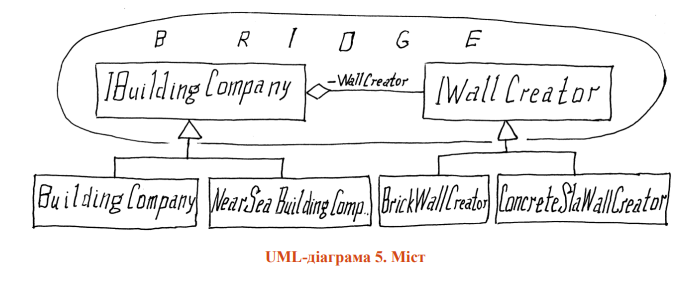 B R I D G E
IBuildingCompany
-WallCreator
IWallCreator
BuildingCompany
NearSea BuildingComp..
BrickWallCreator
ConcreteSlaWallCreator
UML-діаграма 5. Міст